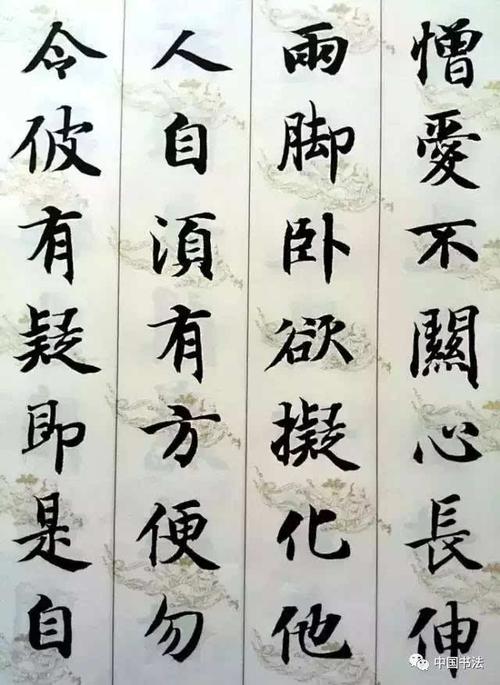 憎愛不關心長伸
兩脚卧欲擬化他
人自須有方便勿
令彼有疑即是自
中国书法